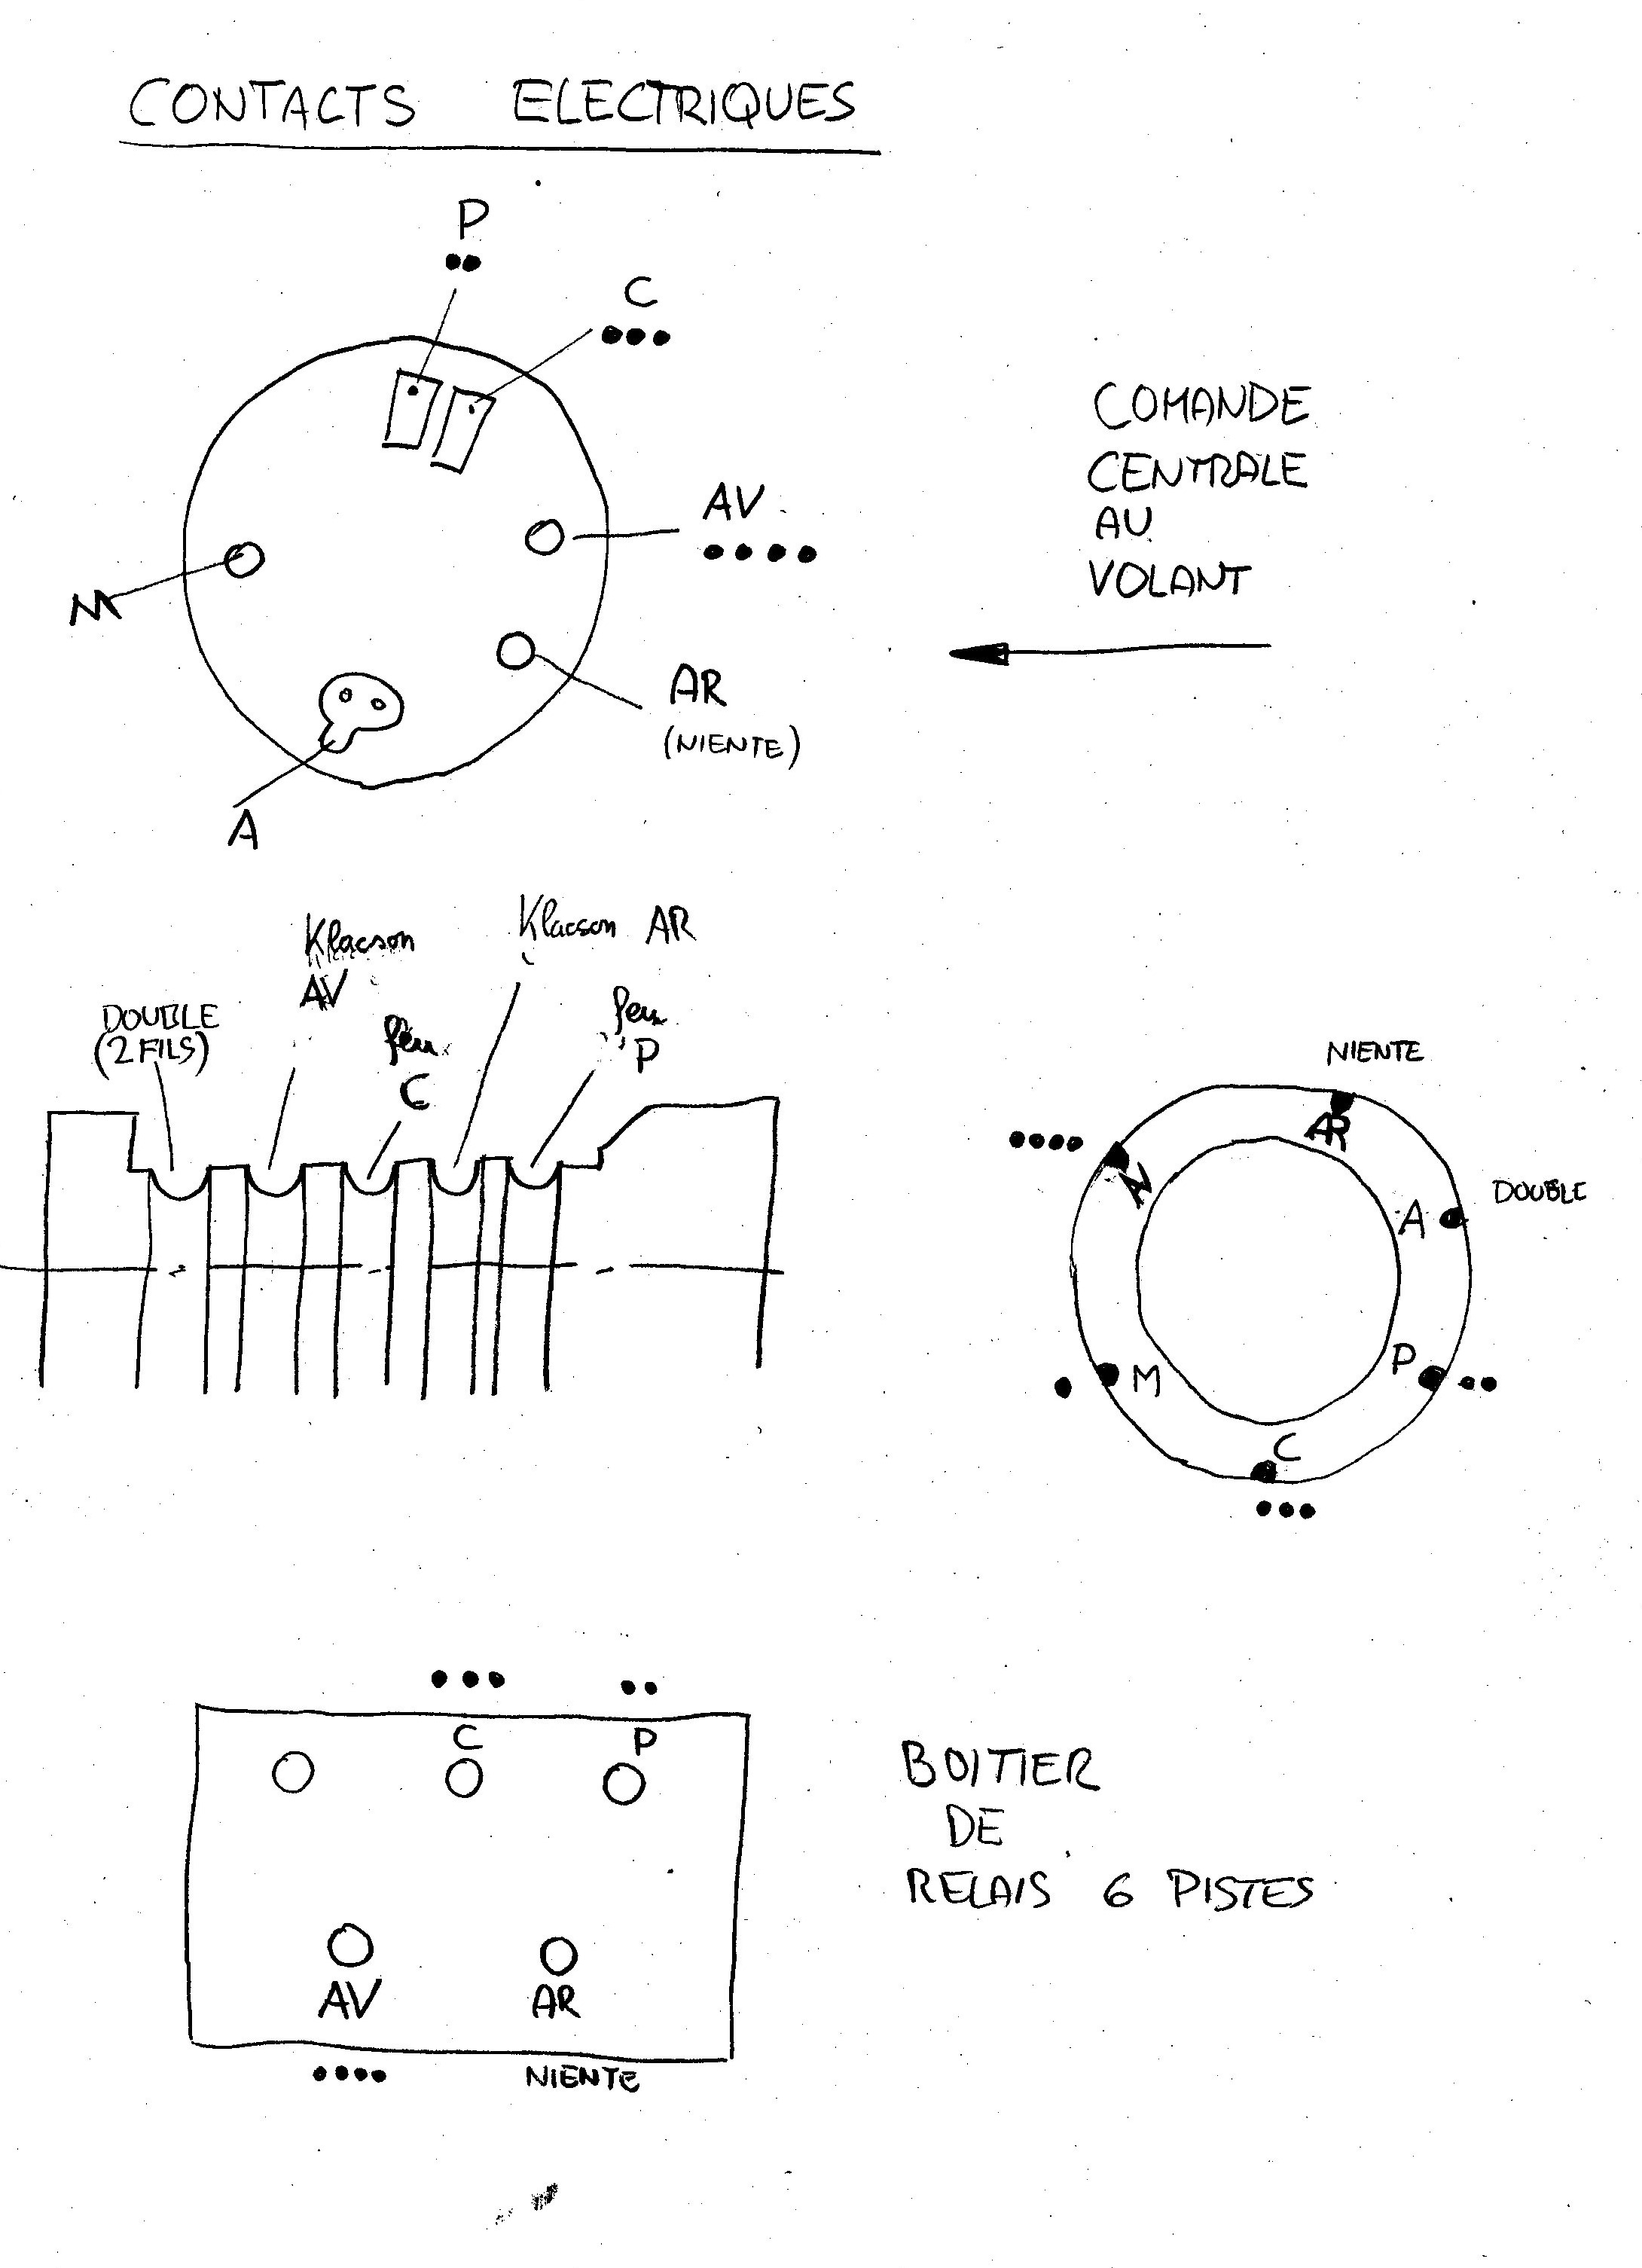 CONTACTS ELECTRIQUES
P
C
AV
M
AR
(NIENTE)
A
COMANDE
CENTRALE
AU
VOLANT
Klacson
AV
Klacson AR
DOUBLE
(2 FILS)
feu
C
feu
P
NIENTE
AR
AV
DOUBLE
A
P
M
C
C
P
AV
AR
NIENTE
BOITIER
DE
RELAIS 6 PISTES